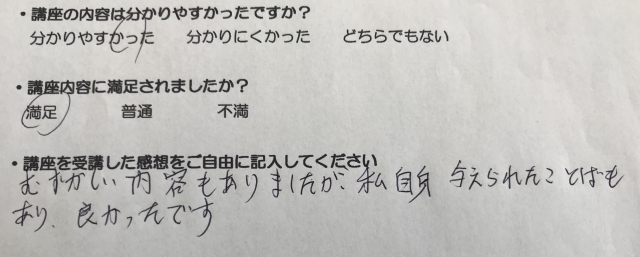 ・講座の内容は分かりやすかったですか？
分かりやすかった　　分かりにくかった　　どちらでもない
・講座内容に満足されましたか？
満足　　　普通　　　不満
・講座を受講した感想をご自由に記入してください
むずかしい内容もありましたが、私自身 与えられたことばも
あり、良かったです